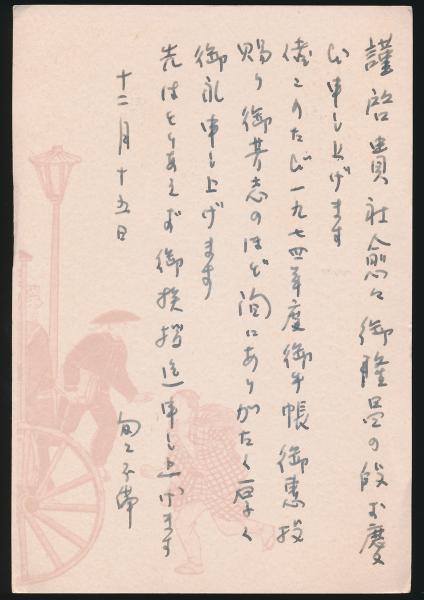 謹啓 貴社愈々御隆昌の段お慶
び申し上げます
偖このたび一九七四年度御手帳御恵投
賜り御芳志のほど洵にありがたく厚く
御礼申し上げます
先はとりあえず御挨拶迄申し上げます
十二月十五日